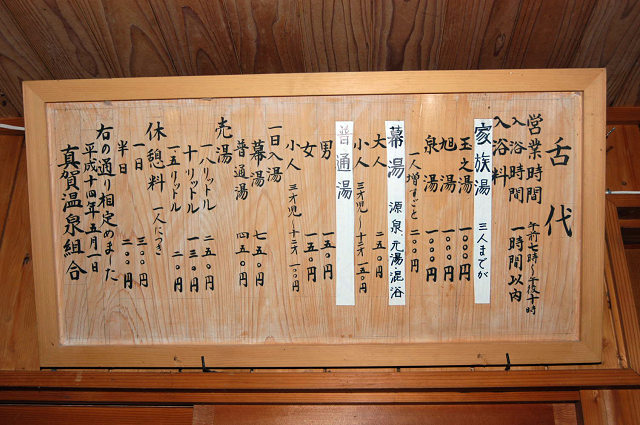 舌代
営業時間 午前七時〜午後十時
入浴時間 一時間以内
入浴料
家族湯 三人までが
玉之湯 一、000円
旭湯 一、000円
泉湯 一、000円
一人増すごと 二00円
幕湯 源泉、元湯・混浴
大人 二五0円
小人 三才児〜十二才 一五0円
普通湯
男 一五0円
女 一五0円
小人 三才児〜十二才 一00円
一日入湯
幕湯 七五0円
普通湯 四五0円
売湯
一八リットル 二五0円
十リットル 一三0円
一五リットル 二0円
休憩料 一人につき
一日 三00円
半日 二00円
右の通り相定めました
平成十四年五月一日
真賀温泉組合